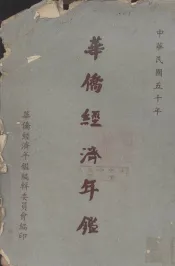 中華民國五十年
華僑經濟年鑑
華僑經濟年鑑編輯委員會編印